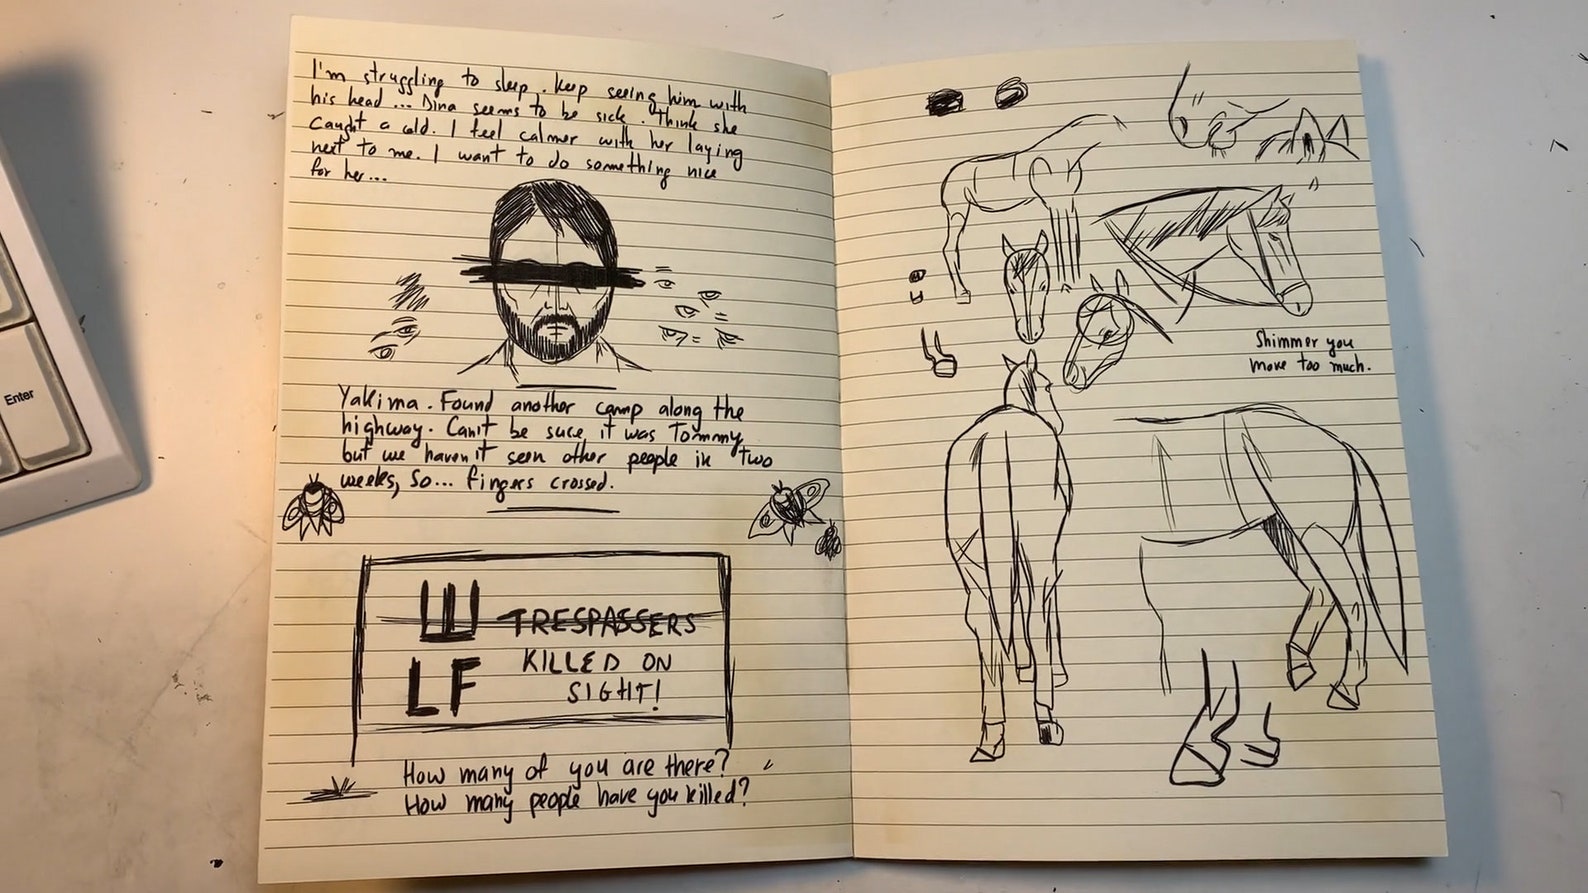 I'm struggling to sleep. Keep seeing him with
his head... Dina seems to be sick. Think she
caught a cold. I feel calmer with her laying
next to me. I want to do something nice
for her...
Yakima. Found another camp along the
highway. Can't be sure it was Tommy
but we haven't seen other people in two
weeks, So... fingers crossed.
W TRESPASSERS
LF KILLED ON
SIGHT!
How many of you are there?
How many people have you killed?
Shimmer you
move too much.
Enter